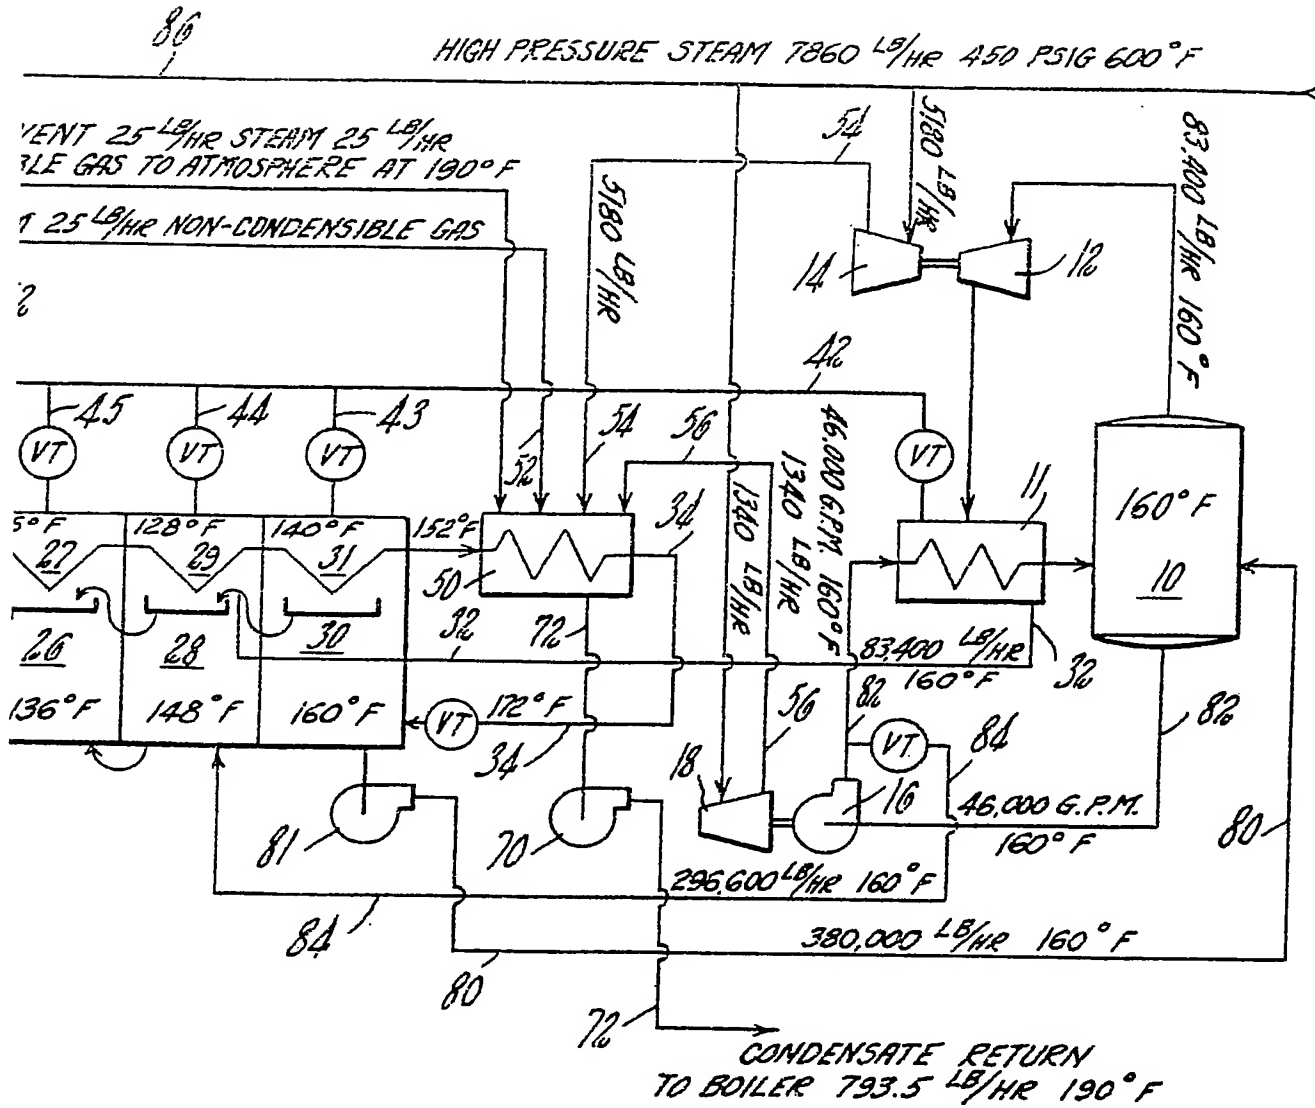 86
HIGH PRESSURE STEAM 7860 LB/HR 450 PSIG 600°F
VENT 25 LB/HR STEAM 25 LB/HR
BLE GAS TO ATMOSPHERE AT 190°F
25 LB/HR NON-CONDENSIBLE GAS
54
5180 LB/HR
83,400 LB/HR 160°F
5180 LB/HR
14
12
42
45
44
43
VT
VT
VT
VT
52
54
56
34
46,000 G.P.M. 160°F
1340 LB/HR
1340 LB/HR
11
5°F
128°F
140°F
152°F
27
29
31
50
160°F
10
26
28
30
32
72
83,400 LB/HR
160°F
32
136°F
148°F
160°F
VT
172°F
34
82
56
VT
84
82
18
16
46,000 G.P.M.
160°F
80
81
70
296,600 LB/HR 160°F
84
380,000 LB/HR 160°F
80
72
CONDENSATE RETURN
TO BOILER 793.5 LB/HR 190°F